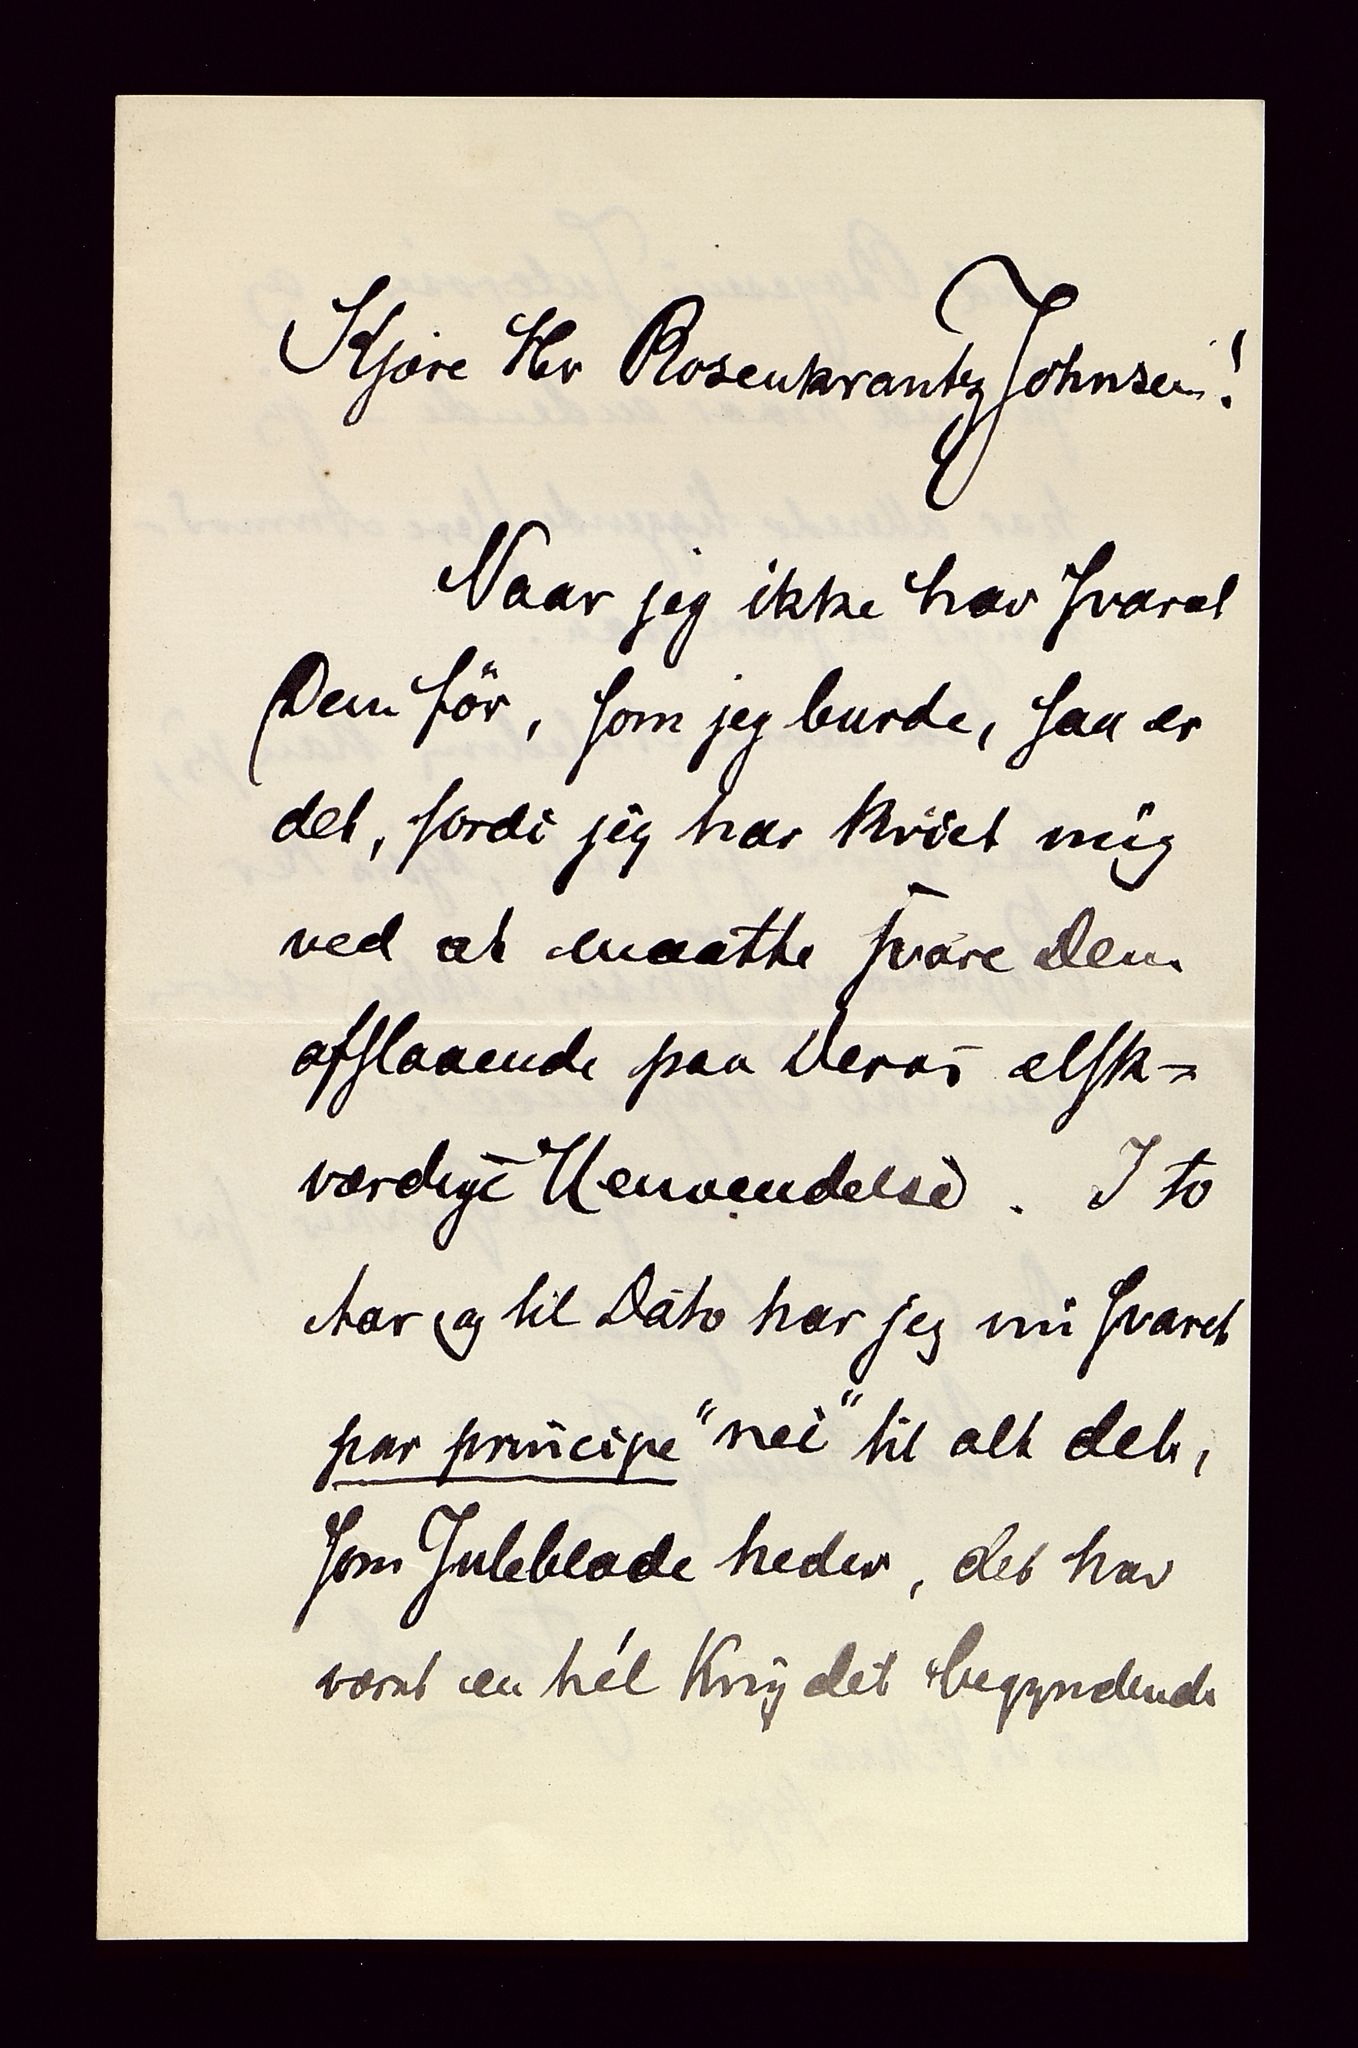 Kjære Hr Rosenkrantz Johnsen!
Naar jeg ikke har svaret
Dem för, som jeg burde, saa er
det, fordi jeg har kviet mig
ved at maatte svare Dem
afslaaende paa Deres elsk-
værdige Henvendelse. I to
Aar og til Dato har jeg nu svaret
par principe "nei" til alt det,
som Juleblade heder, det har
været en hél Krig det begyndende